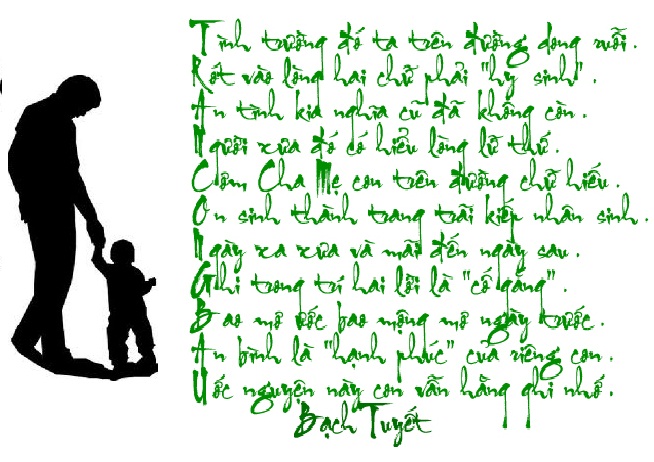 Tình trường đó ta trên đường dong ruỗi.
Rót vào lòng hai chữ phải "hy sinh".
Ân tình kia nghĩa cũ đã không còn.
Người xưa đó có hiểu lòng lữ thứ.
Công Cha Mẹ con trên đường chữ hiếu.
Ơn sinh thành trang trãi kiếp nhân sinh.
Ngày xa xưa và mãi đến ngày sau.
Ghi trong trí hai lời là "cố gắng".
Bao mơ ước bao mộng mơ ngày trước.
An bình là "hạnh phúc" của riêng con.
Ước nguyện này con vẫn hằng ghi nhớ.
Bạch Tuyết